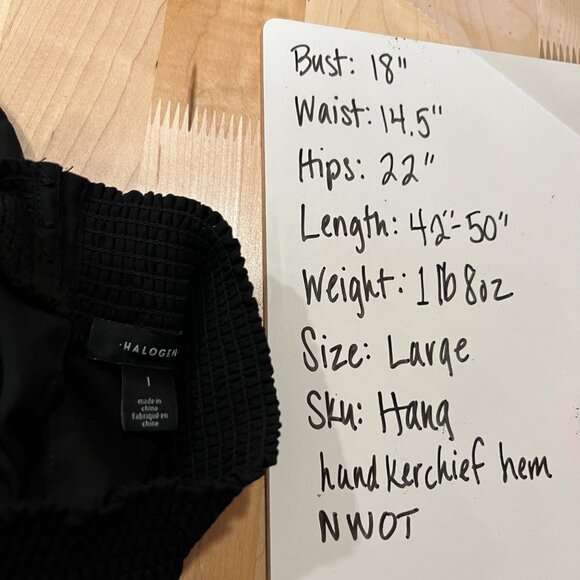 Bust: 18"
Waist: 14.5"
Hips: 22"
Length: 42"-50"
Weight: 1 lb 8oz
Size: Large
Sku: Hang
handkerchief hem
NWOT
·HALOGEN
l
made in
china
fabriqué en
chine